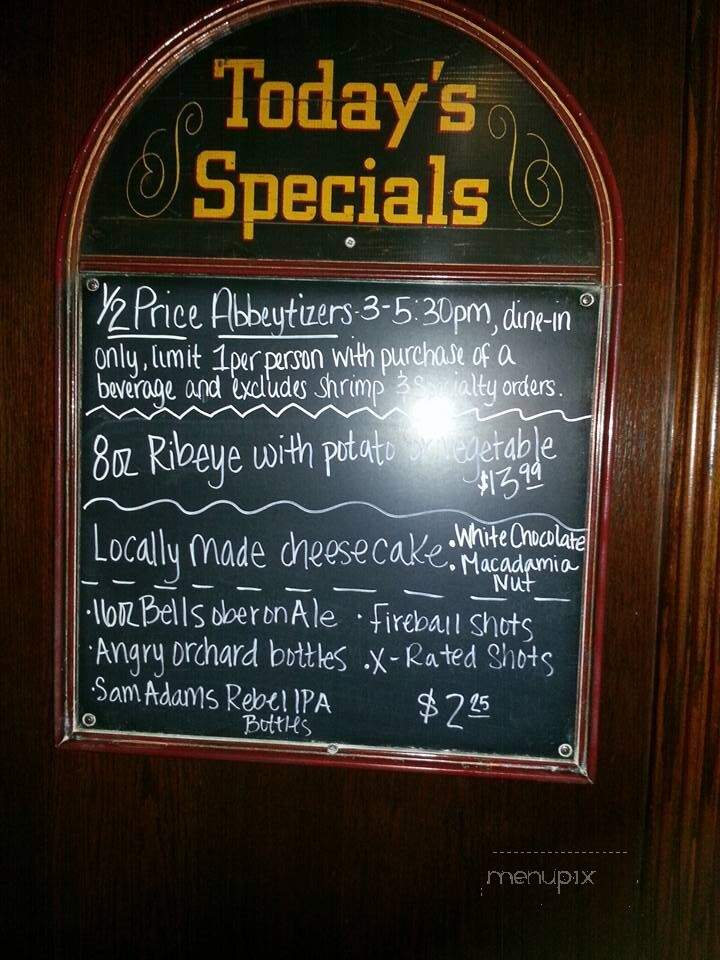 Today's
Specials
1/2 Price Abbeytizers-3-5:30pm, dine-in
only, limit 1 per person with purchase of a
beverage and excludes shrimp & Specialty orders.
8oz Ribeye with potato or vegetable
$13.99
Locally made cheesecake •White Chocolate
•Macadamia
Nut
•16oz Bells oberon Ale •fireball shots
•Angry orchard bottles •X-Rated Shots
•Sam Adams Rebel IPA
Bottles
$2.25
menupix